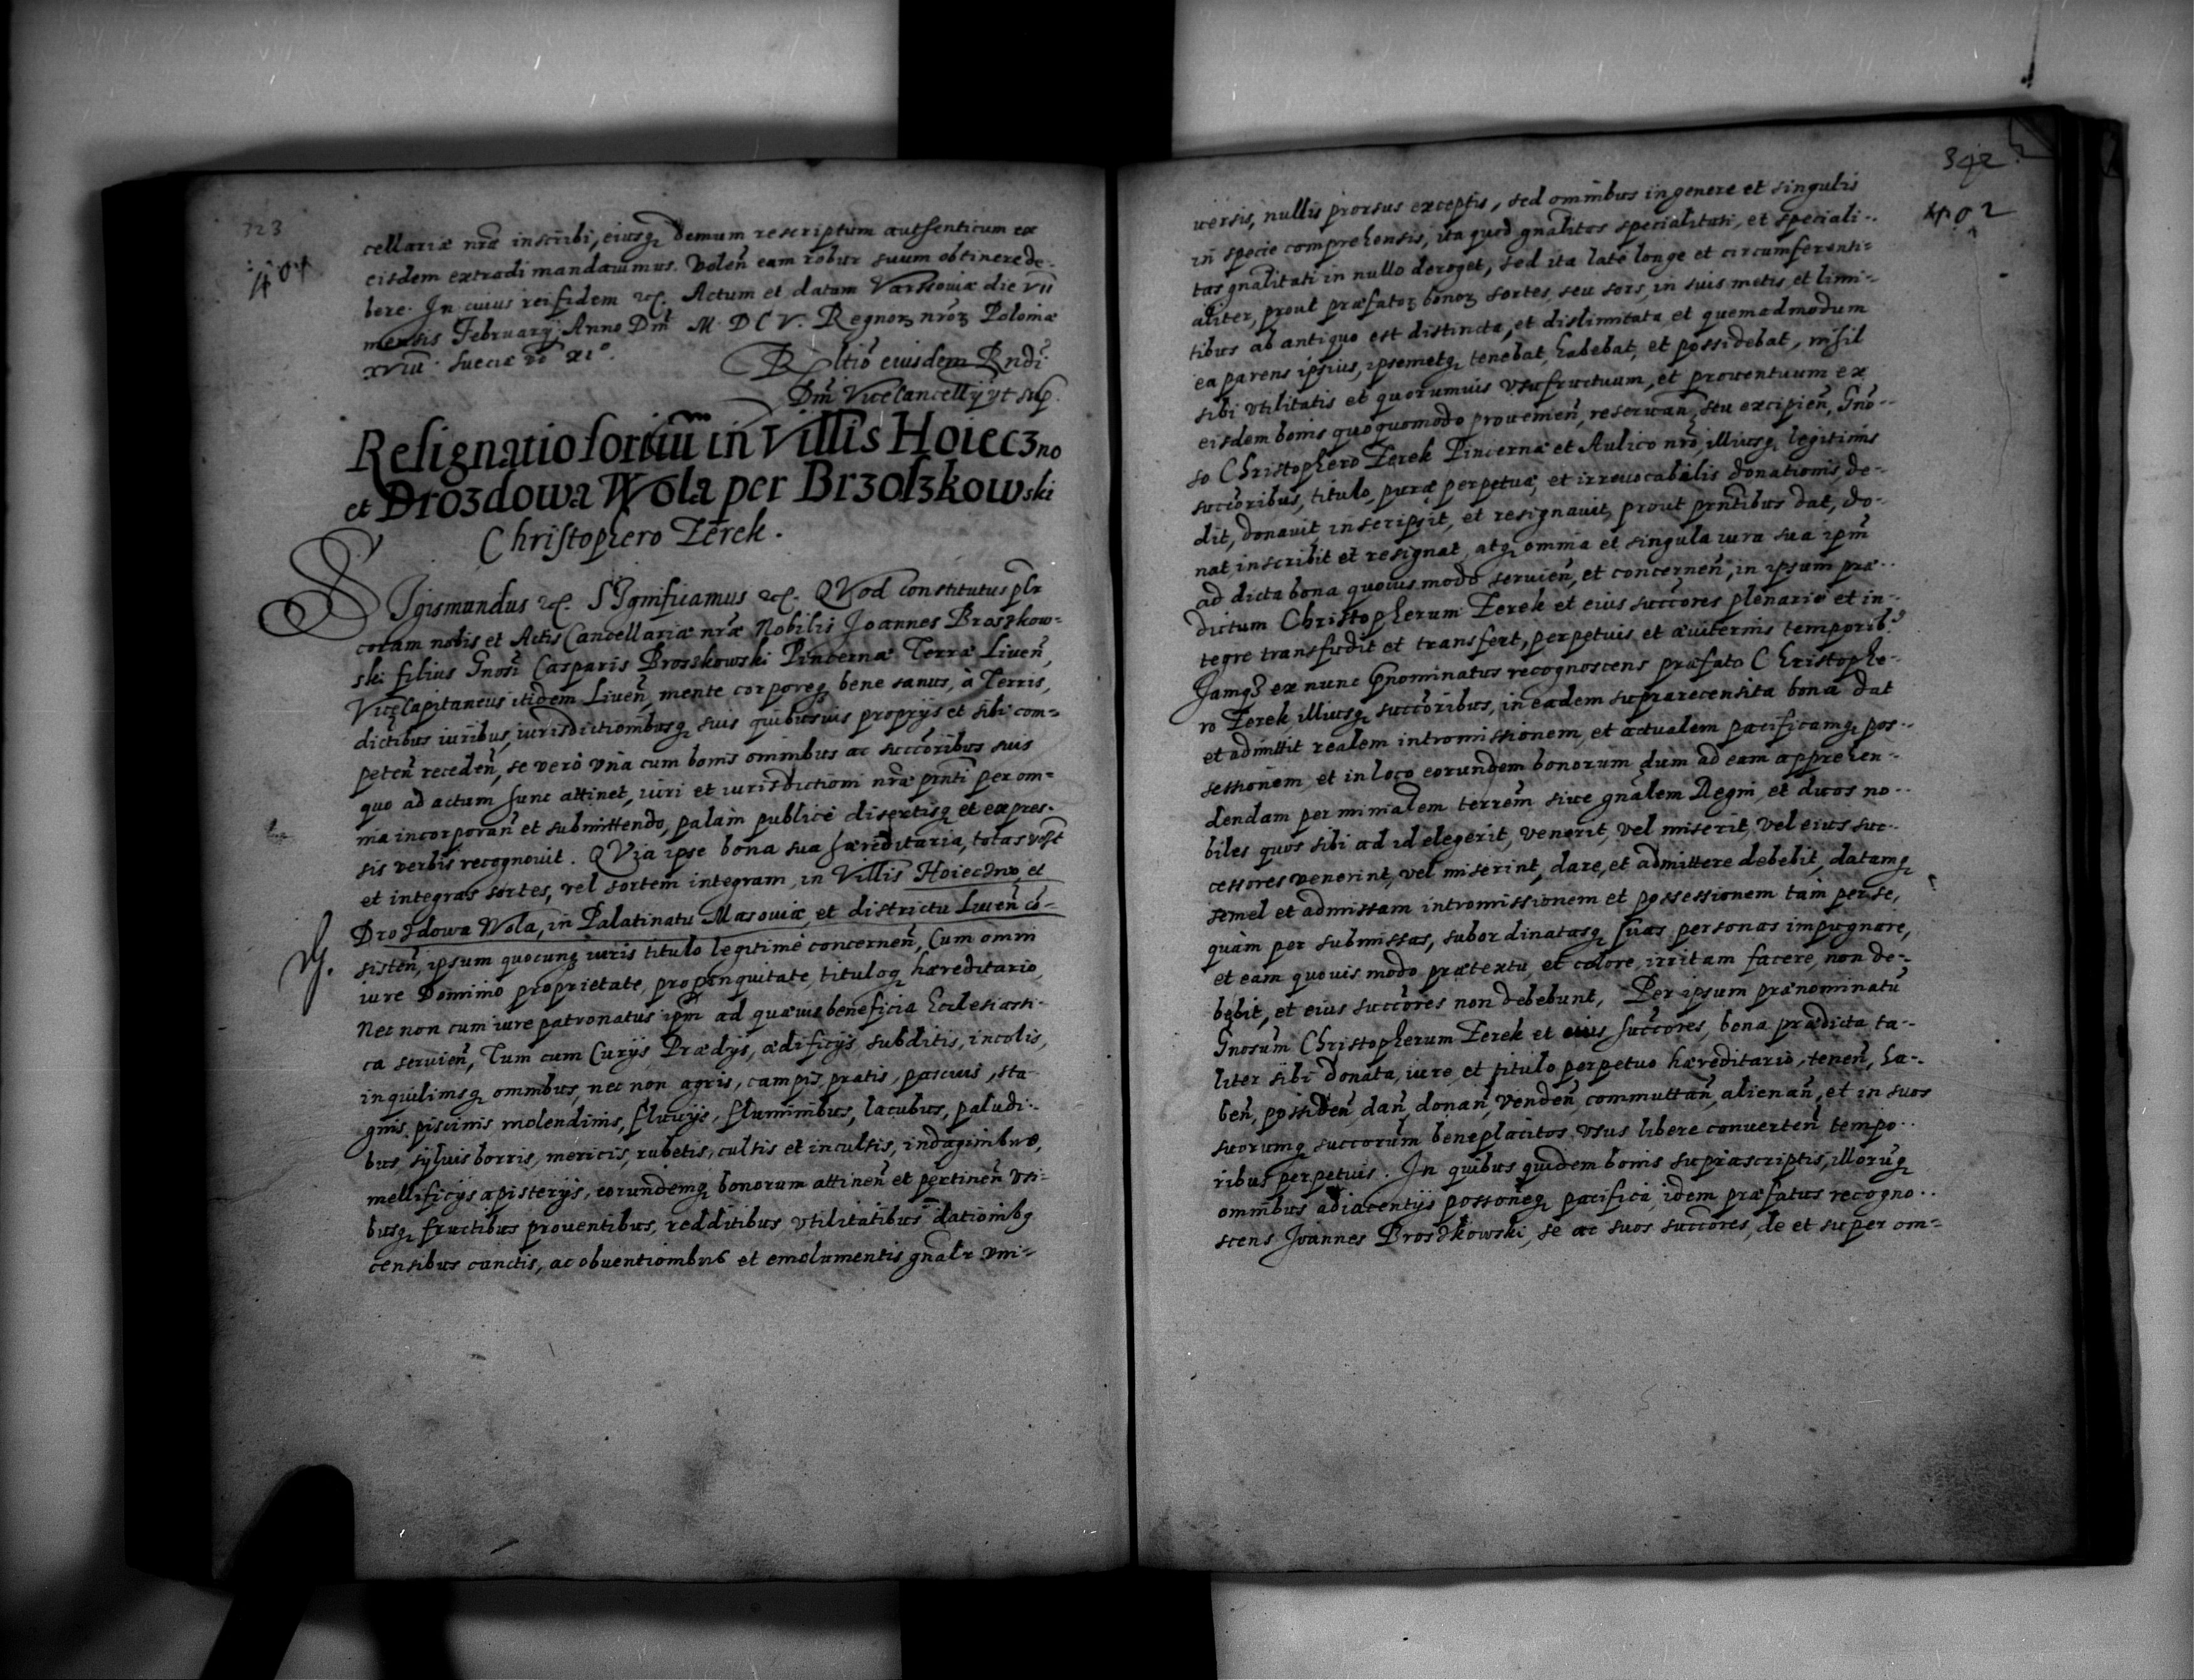 323
401
cellariæ nr̃æ inscribi, eiusq3 demum rescriptum authenticum ex
eisdem extradi mandauimus. Volen̄ eam robur suum obtinere de-
bere. In cuius rei fidem etc. Actum et datum Varsouiæ die VII
mensis February: Anno Dm̄ M. D C V. Regnor3 nr̃or3 Poloniæ
XVIII. Sueciæ XI°.
Rl̃tio eiusdem Rndi
Dm̄ Vicecancellÿ vt sup.
Resignatio sortium in Villis Hoieczno
et Drozdowa Wola per Brzoszkowski
Christophero Zerek.
SIgismundus etc. SIgnificamus etc. QVod constitutus pl̃r
coram nobis et Actis Cancellariæ nr̃æ Nobilis Joannes Broszkow-
ski filius Gnosi Casparis Broszkowski Pincernæ Terræ Liuen̄,
Vicecapitaneus itidem Liuen̄, mente corporeq3 bene sanus, à Terris,
dictibus iuribus, iurisdictionibusq3 suis quibusuis proprÿs et sibi com-
peten̄ receden̄, se verò vnà cum bonis omnibus ac succ̄oribus suis
quo ad actum hunc attinet, iuri et iurisdictioni nr̃æ pr̃nti per om-
nia incorporan̄ et submittendo, palàm publicè disertisq3 et expres-
sis verbis recognouit. QVia ipse bona sua hæreditaria, totas
et integras sortes, vel sortem integram, in Villis Hoieczno, et
Drozdowa Wola, in Palatinatu Masouiæ, et districtu Liuen̄ cō-
sisten̄, ipsum quocunq3 iuris titulo legitimè concernen̄, Cum omni
iure Dominio proprietate, propinquitate, tituloq3 hæreditario,
Nec non cum iure patronatus ipm̄ ad quæuis beneficia Ecclesiasti-
ca seruien̄, Tum cum Curÿs Prædÿs, ædificÿs subditis, incolis,
inquilinisq3 omnibus, nec non agris, campis, pratis, pascuis, sta-
gnis piscinis molendinis, fluuÿs, fluminibus, lacubus, paludi-
bus, syluis borris, mericis, rubetis, cultis et incultis, indaginibus,
mellificÿs apisterÿs, eorundemq3 bonorum attinen̄ et pertinen̄ vsi-
busq3 fructibus prouentibus, redditibus vtilitatibus dationibq
censibus cunctis, ac obuentionibus et emolumentis gnalr vni-
342
402
uersis, nullis prorsus exceptis, sed omnibus in genere et singulis
in specie comprehensis, ita quod gnalitas specialitati, et speciali-
tas gnalitati in nullo deroget, sed ita latè longe et circumferenti-
aliter, prout præfator3 bonor3 sortes, seu sors, in suis metis, et limi-
tibus ab antiquo est distincta, et dislimitata et quemadmodum
ea parens ipsius, ipsemetq3 tenebat, habebat, et possidebat, nihil
sibi vtilitatis et quorumuis vsufructuum, et prouentuum ex
eisdem bonis quoquomodo prouenien̄, reseruan̄, seu excipien̄, Gno-
so Christophero Zerek Pincernæ et Aulico nr̃o, illiusq3 legitimis
succ̄oribus, titulo, puræ perpetuæ, et irreuocabilis donationis, de-
dit, donauit, inscripsit, et resignauit, prout pr̃ntibus dat, do-
nat, inscribit et resignat, atq3 omnia et singula iura sua ipm̄
ad dicta bona quouis modo seruien̄, et concernen̄, in ipsum præ-
dictum Christopherum Zerek et eius succ̄ores plenariè et in-
tegre transfudit et transfert, perpetuis et æuiternis temporib9
Jamq3 ex nunc p̄nominatus recognoscens præfato Christophe-
ro Zerek, illiusq3 succ̄oribus, in eadem suprarecensita bona dat
et admittit realem intromissionem, et actualem pacificamq3 pos-
sessionem, et in loco eorundem bonorum dum ad eam apprehen-
dendam per minialem terrēm siue gnalem Regni, et duos no-
biles quos sibi ad id elegerit, venerit, vel miserit, vel eius suc-
cessores venerint, vel miserint, dare, et admittere debebit, datamq3
semel et admissam intromissionem et possessionem tàm per se,
quàm per submissas, subordinatasq3 suas personas impugnare,
et eam quouis modo prætextu, et colore, irritam facere, non de-
bebit, et eius succ̄ores non debebunt, Per ipsum prænominatū
Gnosum Christopherum Zerek et eius succ̄ores, bona prædicta ta-
liter sibi donata, iure, et titulo perpetuo hæreditario, tenen̄, ha-
ben̄, possiden̄ dan̄, donan̄, venden̄ commuttan̄, alienan̄, et in suos
suorumq3 succorum beneplacitos vsus libere conuerten̄ tempo-
ribus perpetuis. In quibus quidem bonis suprascriptis, illorūq3
omnibus adiacentÿs possoneq3 pacifica, idem præfatus recogno-
scens Joannes Broszkowski, se ac suos succ̄ores, de et super om-